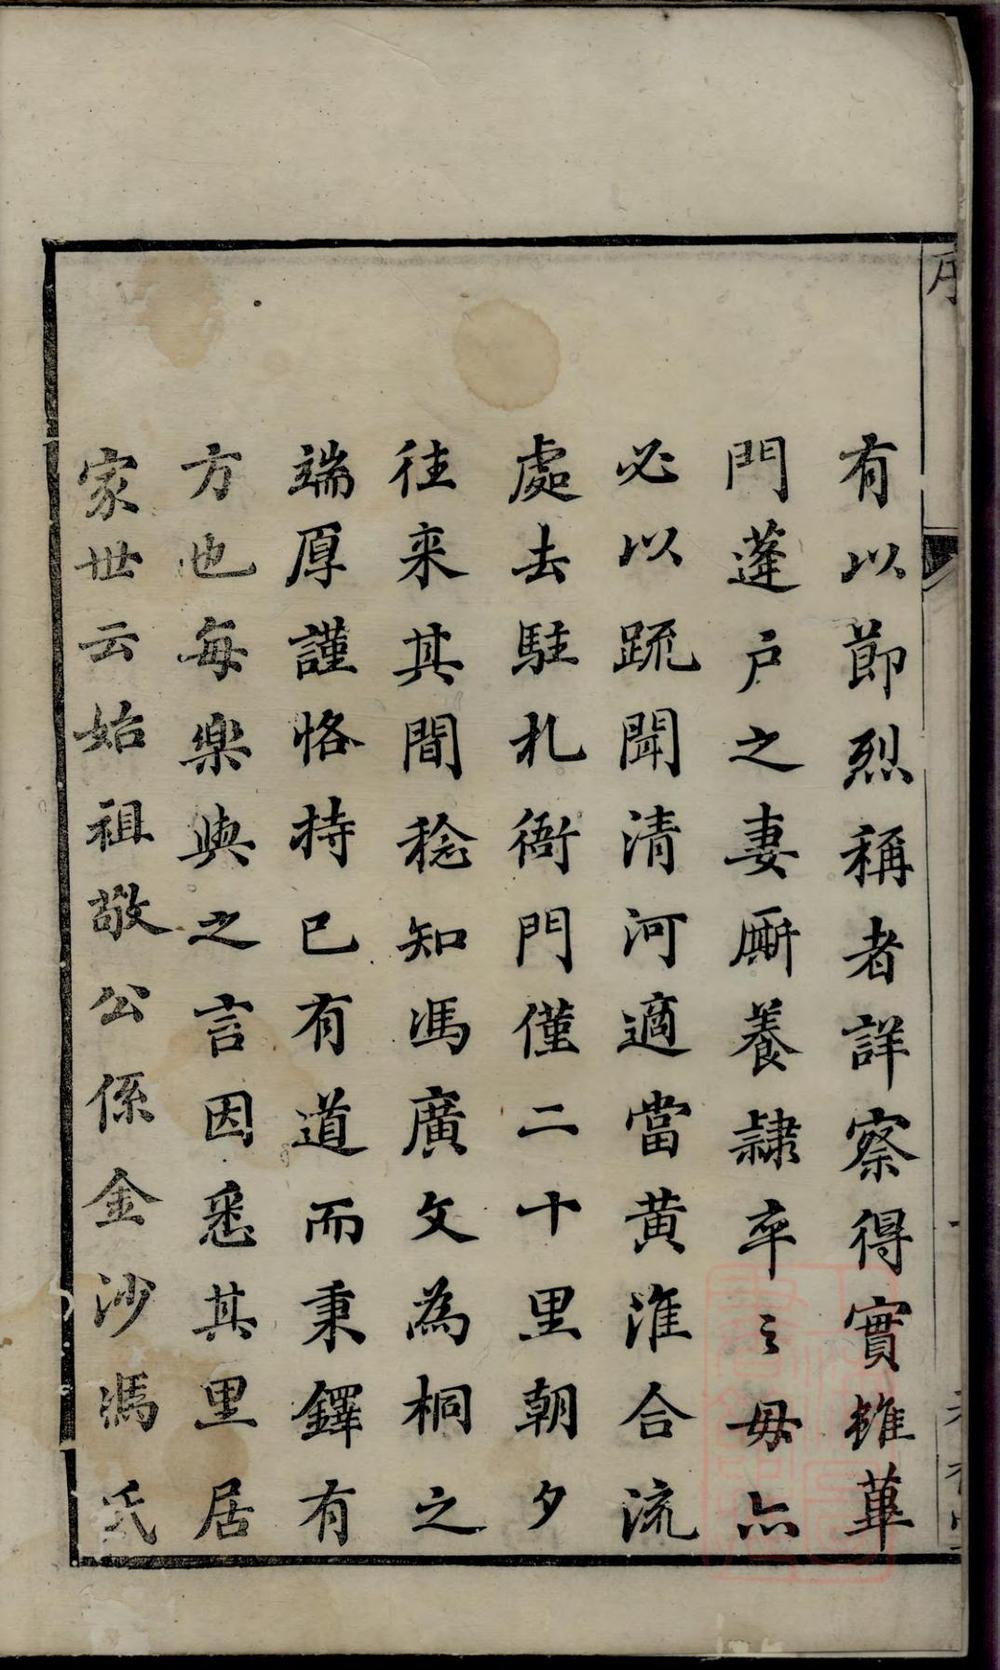 序
有以節烈稱者詳察得實雖蓽
門蓬戶之妻厮養隷卒之母亦
必以疏聞清河適當黄淮合流
處去駐札衙門僅二十里朝夕
徃来其間稔知馮廣文為桐之
端厚謹恪持已有道而秉鐸有
方也每樂與之言因悉其里居
家世云始祖敬公係金沙馮氏